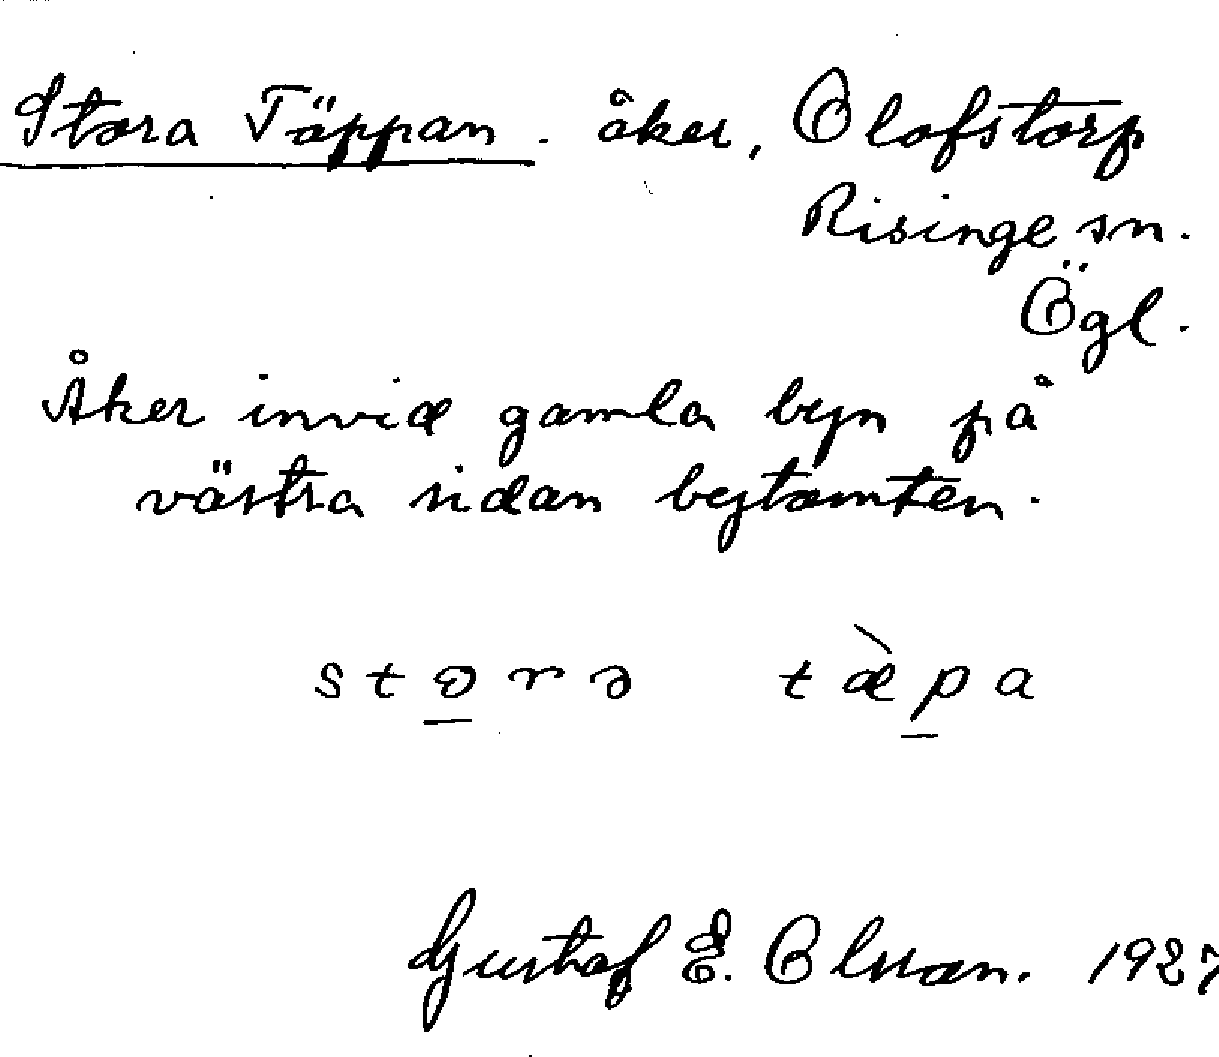 Stora Täppan. åker, Olofstorp
Risinge sn.
Ögl.
Åker invid gamla byn på
västra sidan bytomten.
storə tæ̀pa
Gustaf E. Olsson. 1927